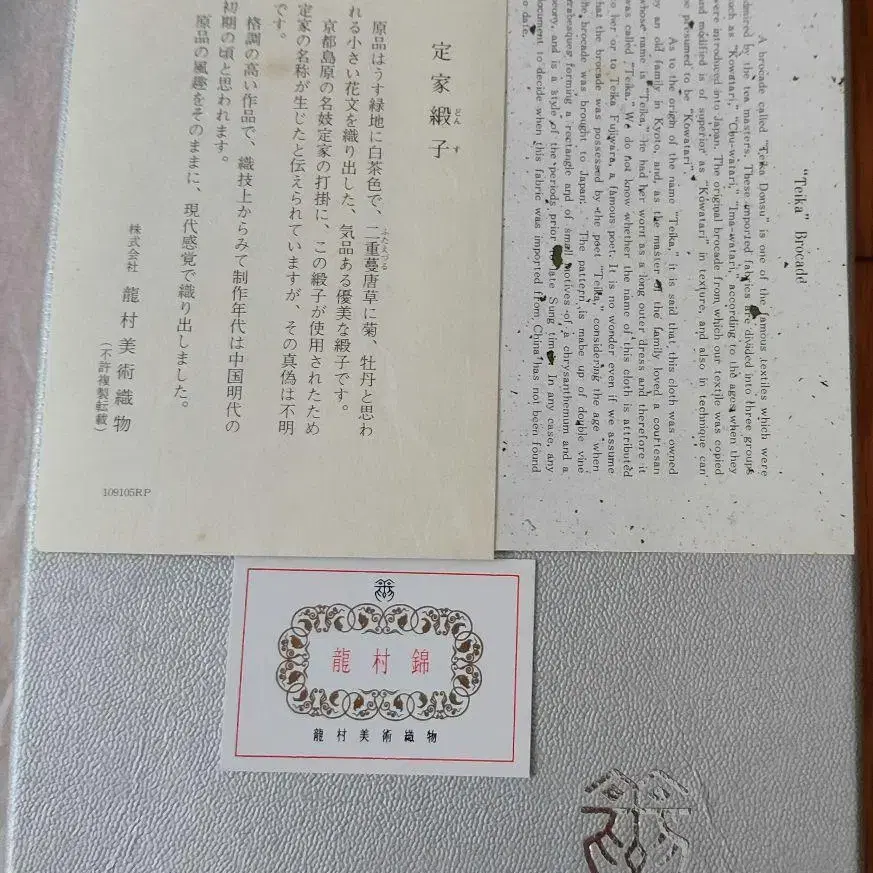 定家緞子
どんす
原品はうす緑地に白茶色で、二重蔓唐草に菊、牡丹と思わ
ふたえづる
れる小さい花文を織り出した、気品ある優美な緞子です。
京都島原の名妓定家の打掛に、この緞子が使用されたため
定家の名称が生じたと伝えられていますが、その真偽は不明
です。
格調の高い作品で、織技上からみて制作年代は中国明代の
初期の頃と思われます。
原品の風趣をそのままに、現代感覚で織り出しました。
株式会社 龍村美術織物
(不許複製転載)
109105RP
"Teika" Brocade
A brocade called "Teika Donsu" is one of the famous textiles which were
admired by the tea masters. These imported fabrics are divided into three groups
such as "Kowatari," "Chu-watari," "Ima-watari," according to the ages when they
were introduced into Japan. The original brocade from which our textile was copied
and modified is of superior as "Kowatari" in texture, and also in technique can
be presumed to be "Kowatari".
As to the origin of the name "Teika," it is said that this cloth was owned
by an old family in Kyoto, and, as the master of the family loved a courtesan
whose name is "Teika," he had her worn as a long outer dress and therefore it
was called "Teika." We do not know whether the name of this cloth is attributed
to her or to Teika Fujiwara, a famous poet. It is no wonder even if we assume
that the brocade was possessed by the poet "Teika," considering the age when
the brocade was brought to Japan. The pattern is made up of double vine
arabesques forming a rectangle and of small motives of a chrysanthemum and a
peony, and is a style of the periods prior to late Sung time. In any case, any
document to decide when this fabric was imported from China has not been found
to date.
龍村錦
龍村美術織物